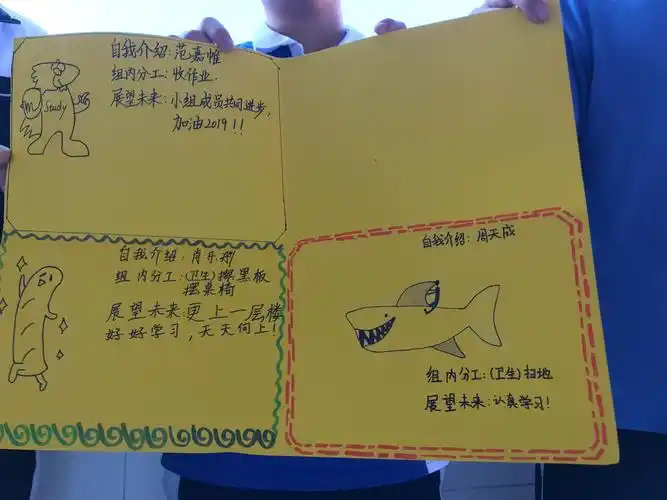 自我介绍：范嘉惟
组内分工：收作业.
展望未来：小组成员共同进步，
加油2019!!
Study
自我介绍：肖乐
组内分工：(卫生) 擦黑板
摆桌椅
展望未来：更上一层楼
好好学习，天天向上！
自我介绍：周天成
组内分工：(卫生) 扫地
展望未来：认真学习！